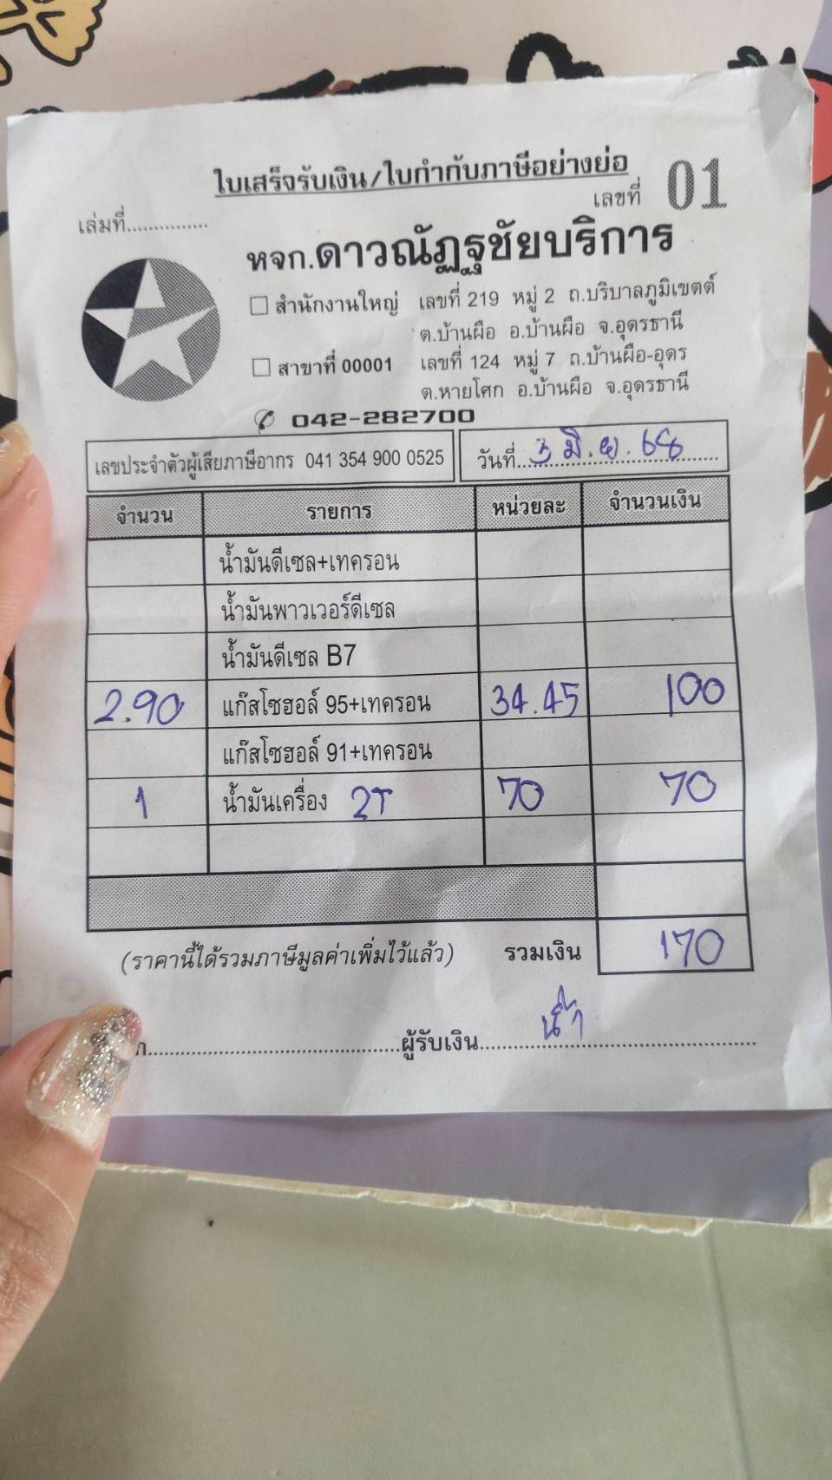 ใบเสร็จรับเงิน/ใบกำกับภาษีอย่างย่อ
เล่มที่............... เลขที่ 01
หจก.ดาวณัฏฐชัยบริการ
สำนักงานใหญ่ เลขที่ 219 หมู่ 2 ถ.บริบาลภูมิเขตต์
ต.บ้านผือ อ.บ้านผือ จ.อุดรธานี
สาขาที่ 00001 เลขที่ 124 หมู่ 7 ถ.บ้านผือ-อุดร
ต.หายโศก อ.บ้านผือ จ.อุดรธานี
042-282700
เลขประจำตัวผู้เสียภาษีอากร 041 354 900 0525 วันที่ 3 มิ.ย. 68
จำนวน รายการ หน่วยละ จำนวนเงิน
น้ำมันดีเซล+เทครอน
น้ำมันพาวเวอร์ดีเซล
น้ำมันดีเซล B7
2.90 แก๊สโซฮอล์ 95+เทครอน 34.45 100
แก๊สโซฮอล์ 91+เทครอน
1 น้ำมันเครื่อง 2T 70 70
(ราคานี้ได้รวมภาษีมูลค่าเพิ่มไว้แล้ว) รวมเงิน 170
ผู้รับเงิน